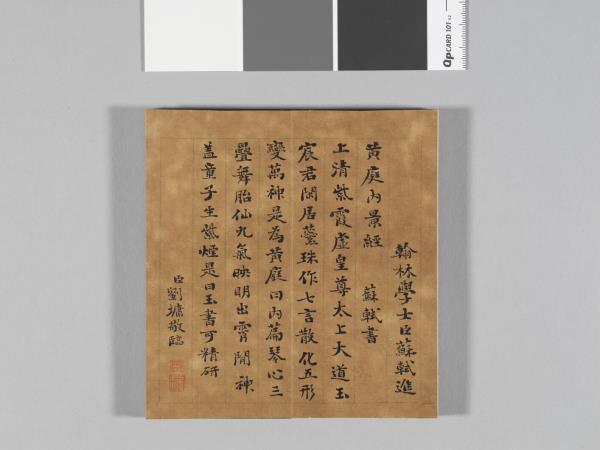 翰林學士臣蘇軾進
黃庭內景經　蘇軾書
上清紫霞虛皇尊太上大道玉
宸君閑居蘂珠作七言散化五形
變萬神是為黃庭曰內篇琴心三
疊舞胎仙九氣映明出霄間神
盖童子生紫煙是曰玉書可精研
臣劉墉敬臨
QpCARD 101